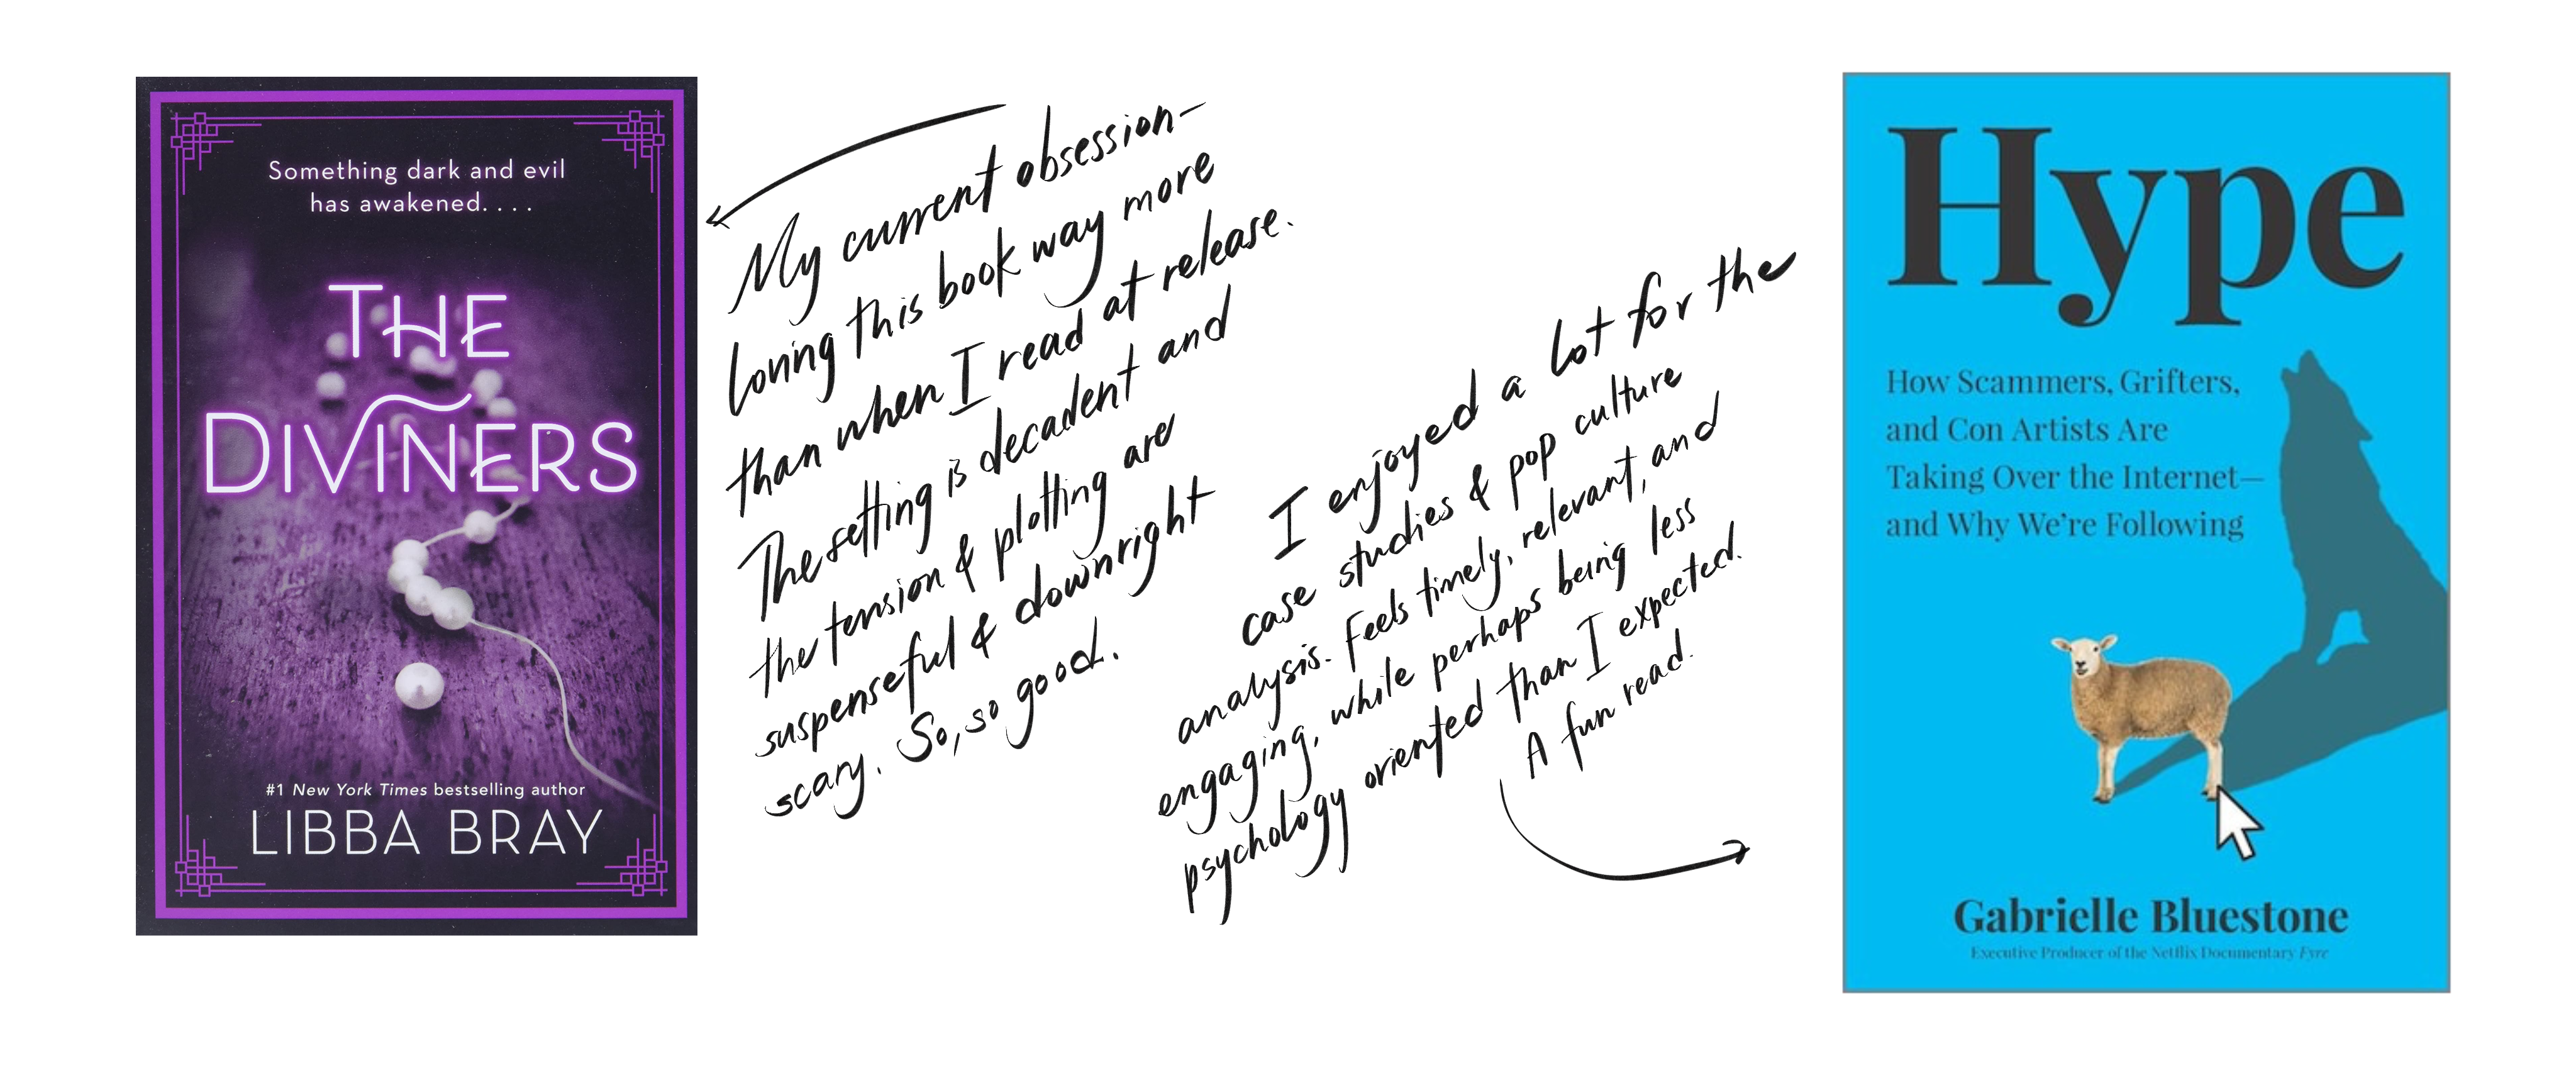 Something dark and evil
has awakened. . . .
THE
DIVINERS
#1 New York Times bestselling author
LIBBA BRAY
My current obsession-
loving this book way more
than when I read at release.
The setting is decadent and
the tension & plotting are
suspenseful & downright
scary. So, so good.
I enjoyed a lot for the
case studies & pop culture
analysis. Feels timely, relevant, and
engaging, while perhaps being less
psychology oriented than I expected.
A fun read.
Hype
How Scammers, Grifters,
and Con Artists Are
Taking Over the Internet—
and Why We're Following
Gabrielle Bluestone
Executive Producer of the Netflix Documentary Fyre